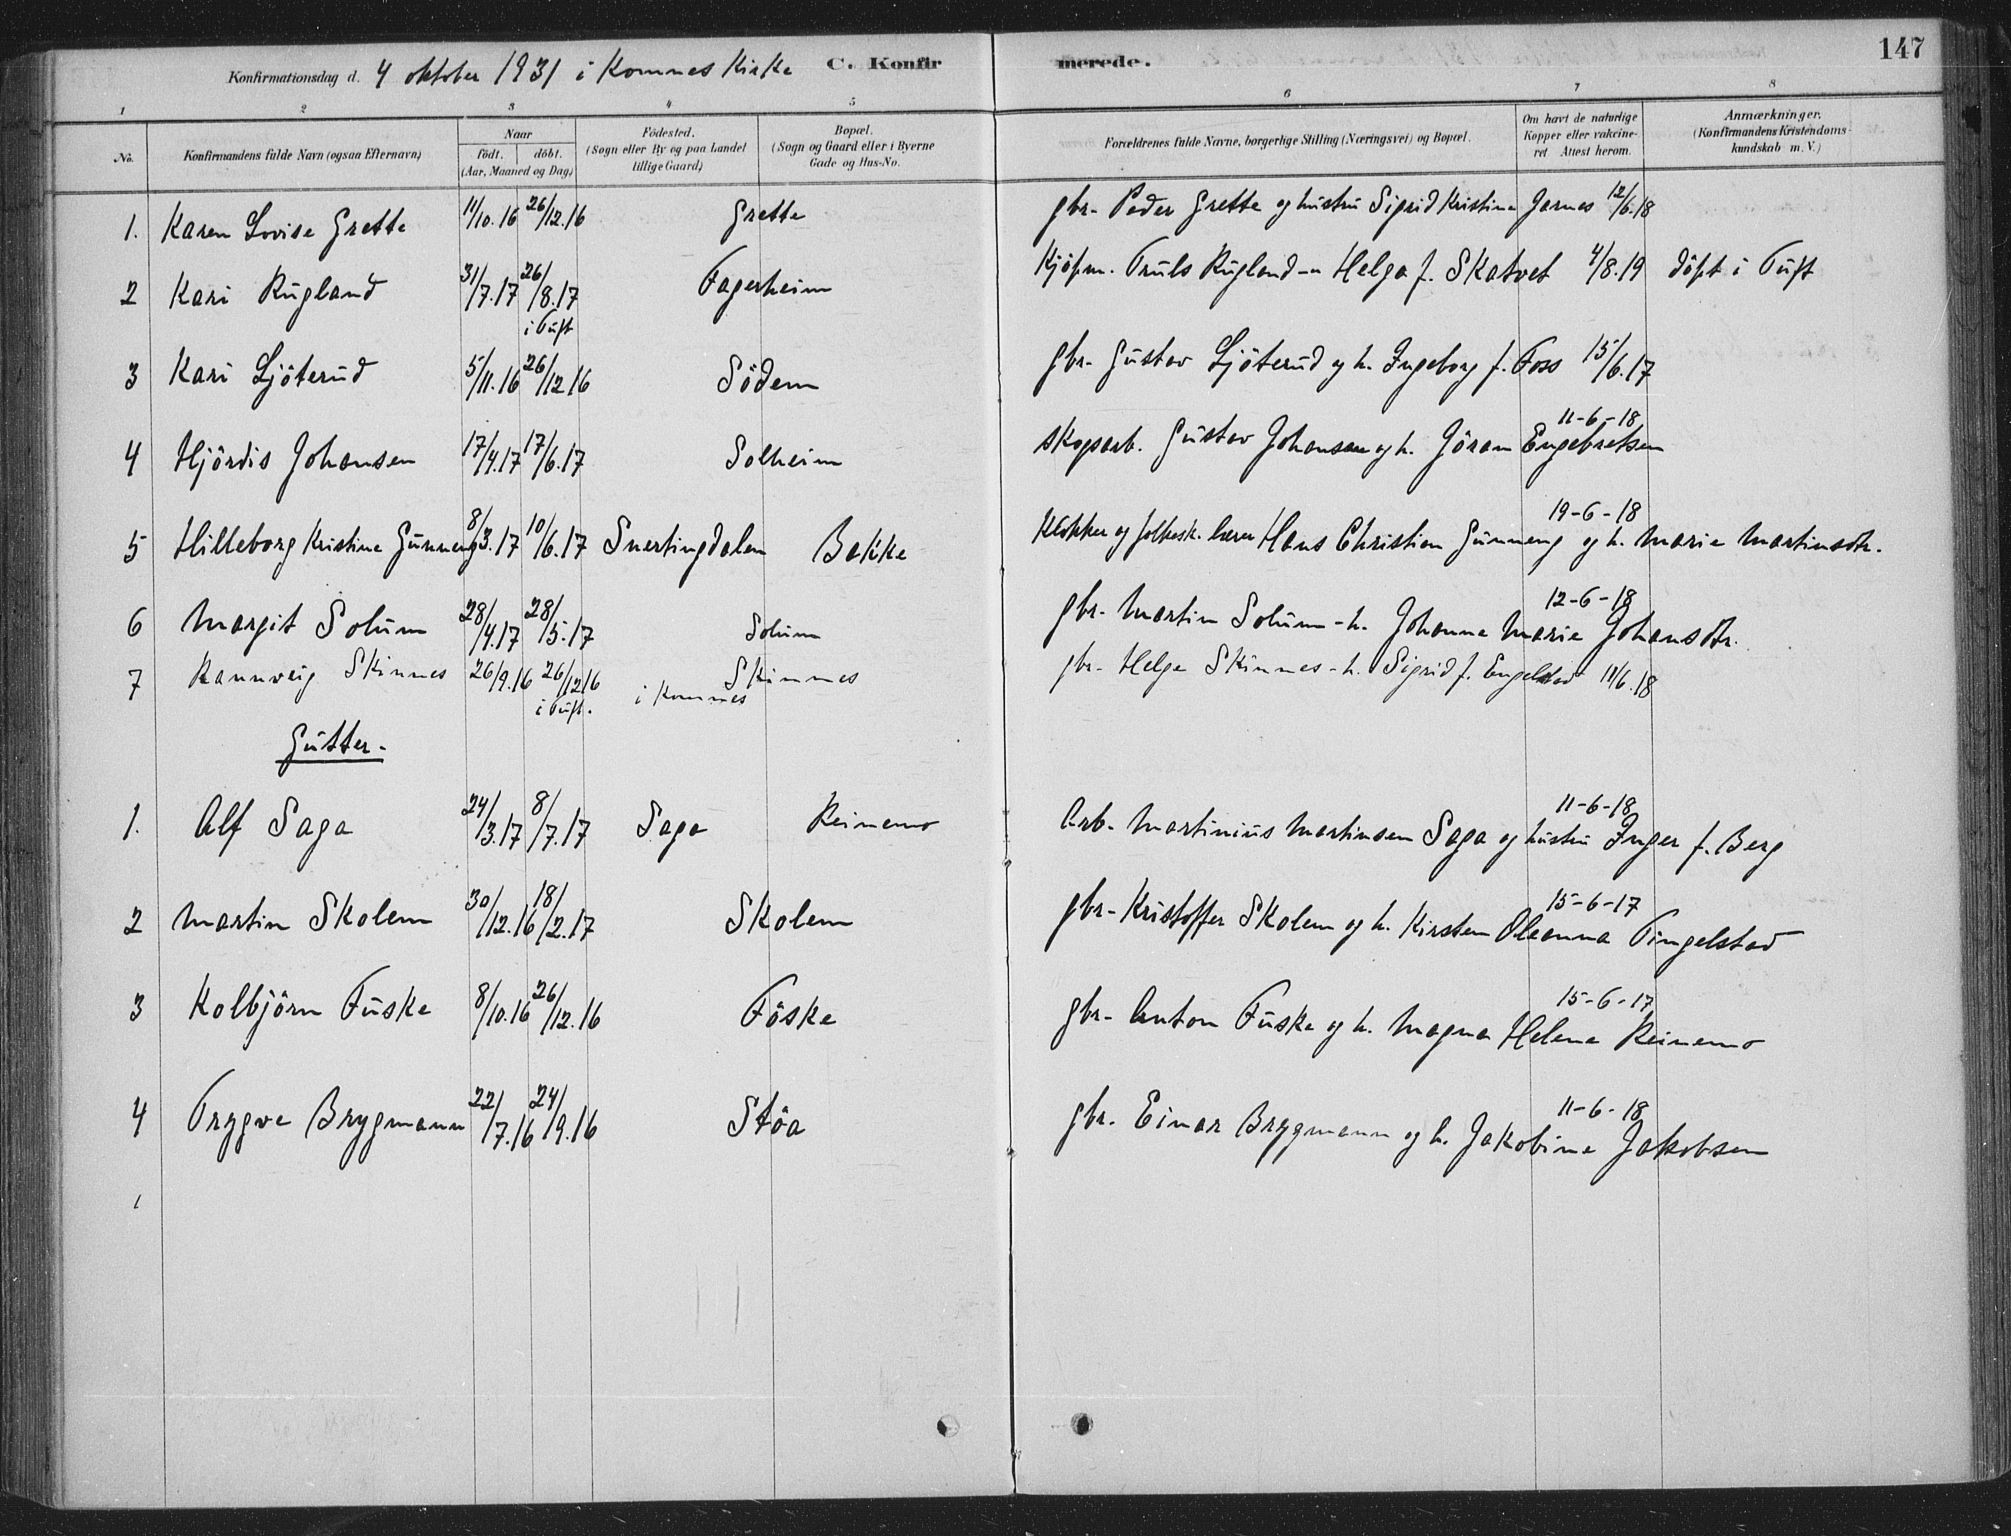 147
Konfirmationsdag d. 4 oktober 1931 i Komnes Kirke C. Konfir merede.
1 2 3 4 5 6 7 8
No. Konfirmandens fulde Navn (ogsaa Efternavn) Naar födt. döbt. (Aar, Maaned og Dag) Födested. (Sogn eller By og paa Landet tillige Gaard) Bopæl. (Sogn og Gaard eller i Byerne Gade og Hus-No. Forældrenes fulde Navne, borgerlige Stilling (Næringsvei) og Bopæl. Om havt de naturlige Kopper eller vakcineret. Attest herom. Anmærkninger. (Konfirmandens Kristendomskundskab m. V.)
1. Karen Lovise Grette 11/10.16 26/12.16 Grette gbr. Peder Grette og hustru Sigrid Kristine Jarnes 12/6.18
2 Kari Rugland 31/7.17 26/8.17 i Tuft Fagerheim Kjöpm. Truls Rugland - " Helga f. Skatvet 4/8.19 döpt i Tuft
3 Kari Ljöterud 5/11.16 26/12.16 Södem gbr. Gustav Ljöterud og h. Ingeborg f. Foss 15/6.17
4 Hjördis Johansen 17/4.17 17/6.17 Solheim skogsarb. Gustav Johansen og h. Jöran Engebretsen 11-6-18
5 Hilleborg Kristine Gunneng 8/3.17 10/6.17 Snertingdalen Bakke Klokker og folkesk. lærer Hans Christian Gunneng og h. Marie Martinsdtr. 19-6-18
6 Margit Solum 28/4.17 28/5.17 Solum gbr. Martin Solum - h. Johanne Marie Johansdtr. 12-6-18
7 Rannveig Skinnes 26/9.16 26/12.16 i Tuft. Skinnes i Komnes gbr. Helge Skinnes - h. Sigrid f. Engelstad 11/6.18
Gutter.
1. Alf Saga 24/3.17 8/7.17 Saga Reinemo Arb. Martinius Martinsen Saga og hustru Inger f. Berg 11-6-18
2 Martin Skolem 30/12.16 18/2.17 Skolem gbr. Kristoffer Skolem og h. Kirsten Oleanna Tingelstad 15-6-17
3 Kolbjörn Fuske 8/10.16 26/12.16 Föske gbr. Anton Fuske og h. Magna Helene Reinemo 15-6-17
4 Trygve Brygmann 22/7.16 24/9.16 Stöa gbr. Einar Brygmann og h. Jakobine Jakobsen 11-6-18